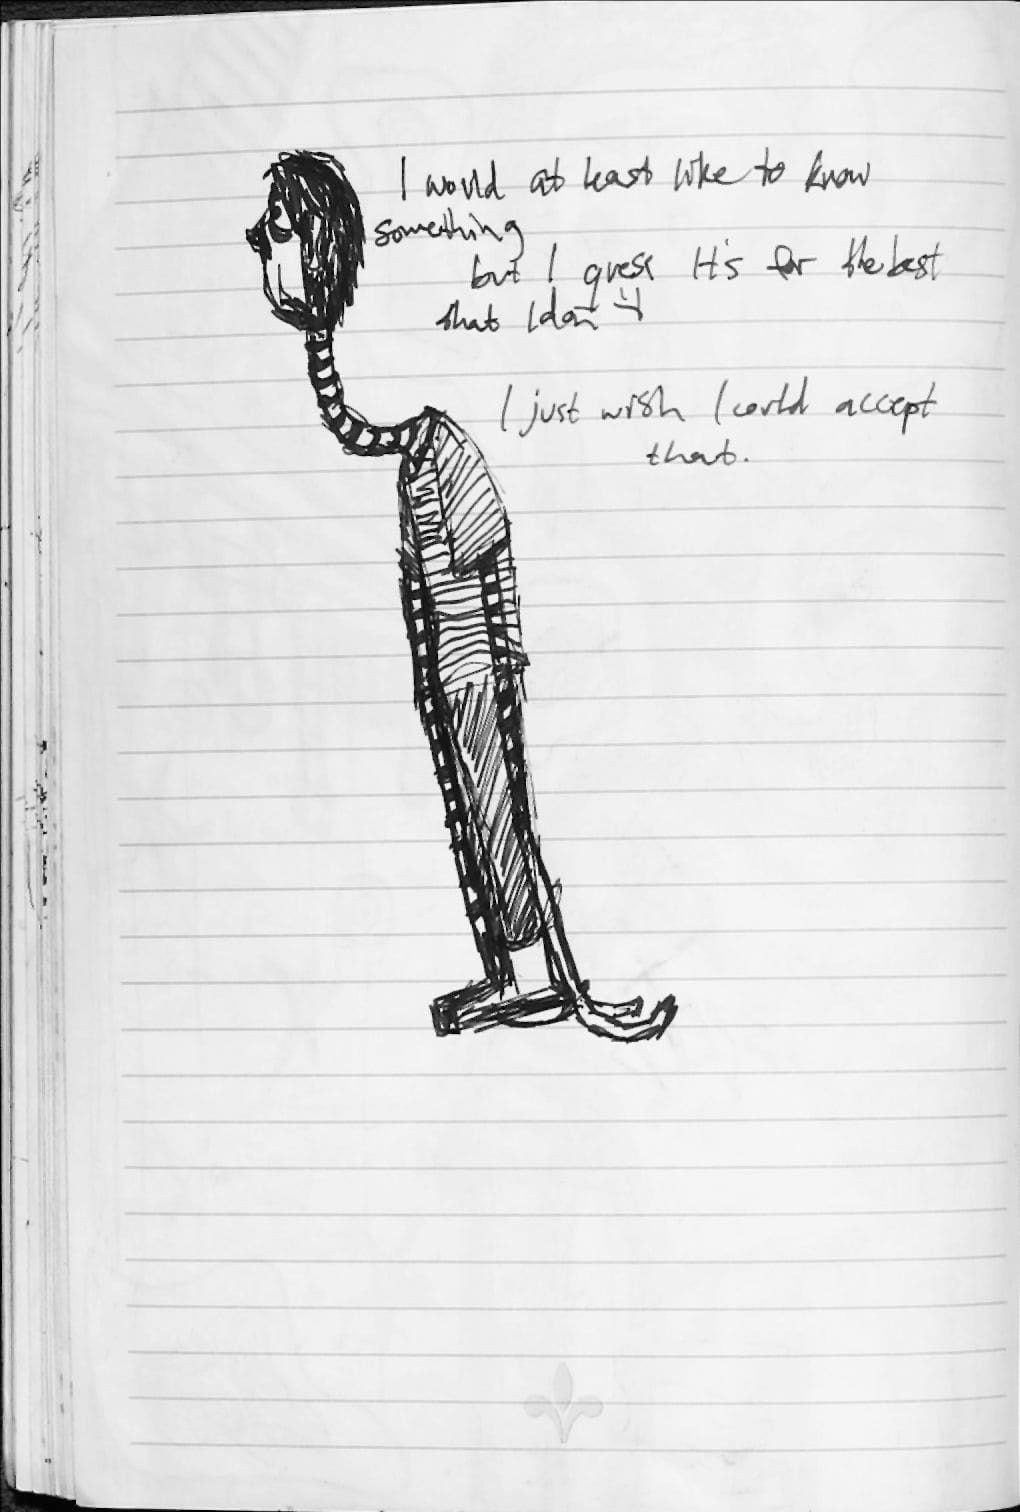 I would at least like to know
something
but I guess It's for the best
that I don't
I just wish I could accept
that.